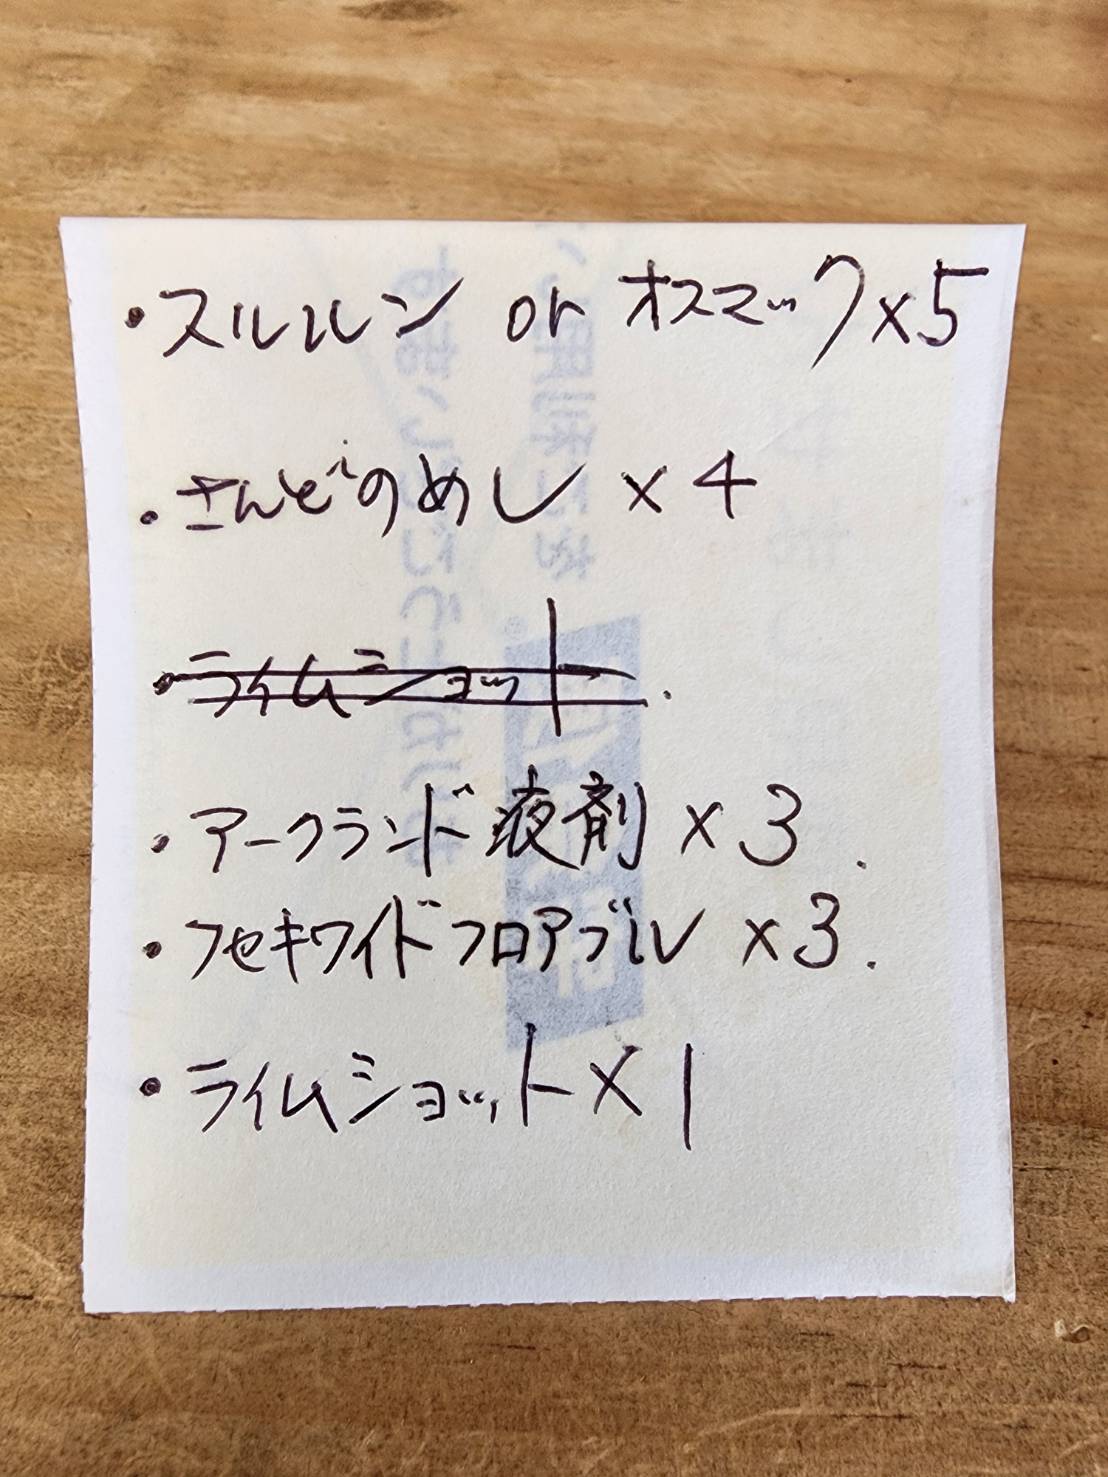 ・スルルン or オスマック×5
・さんどのめし ×4
・ライムショット.
・アークランド液剤 ×3.
・フセキワイドフロアブル ×3.
・ライムショット×1